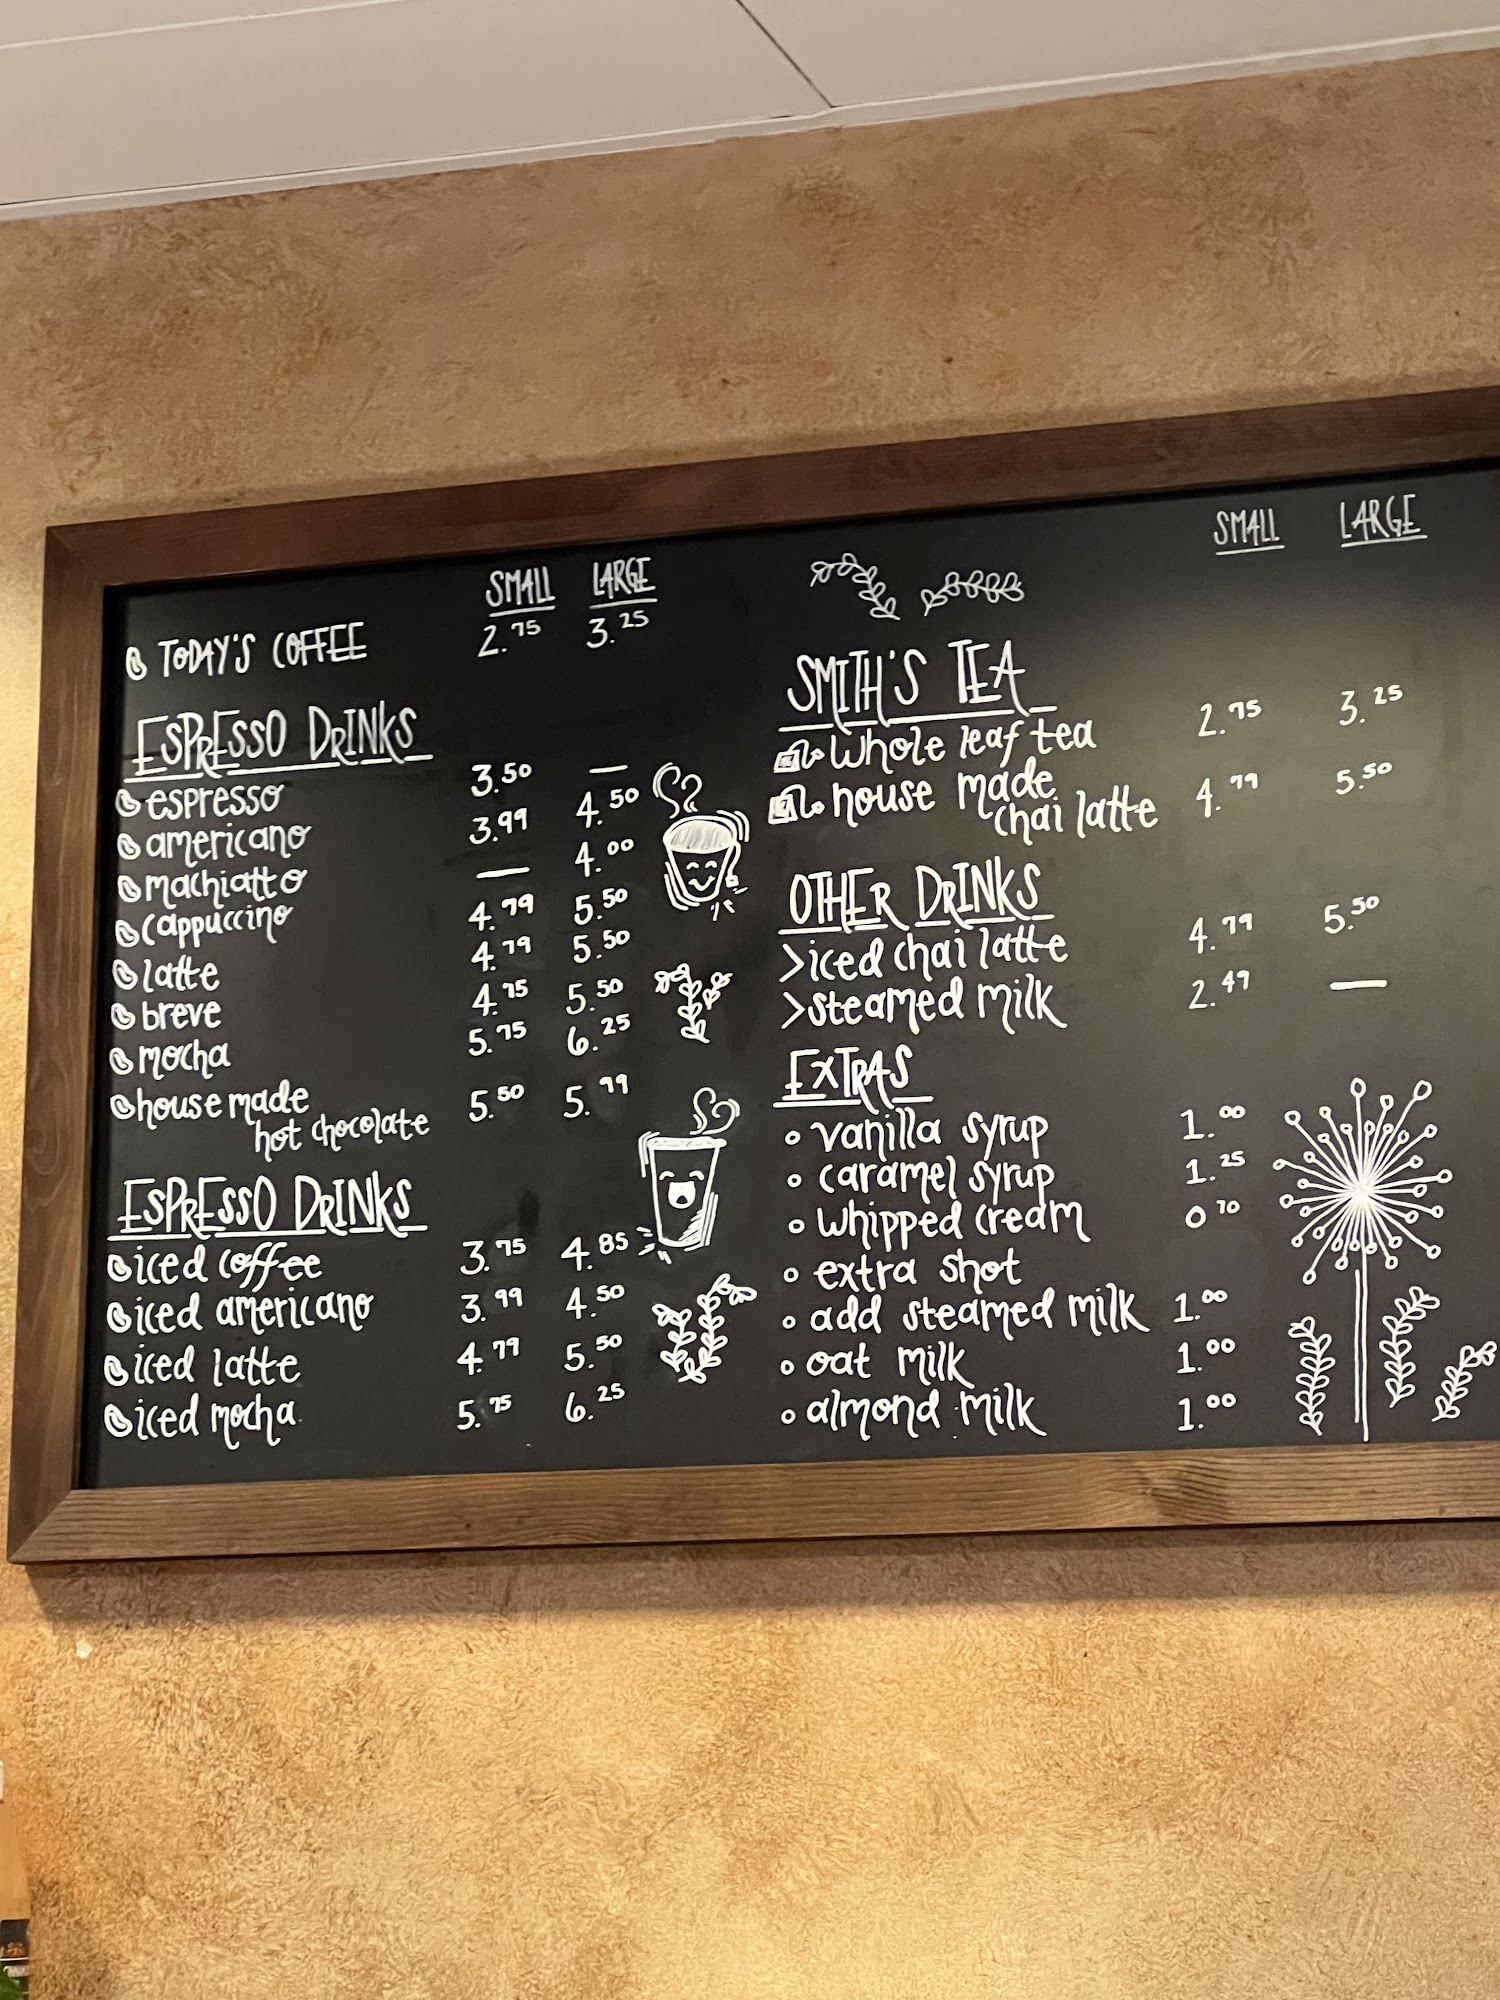 SMALL LARGE
TODAY'S COFFEE 2.75 3.25
ESPRESSO DRINKS
espresso 3.50 —
americano 3.99 4.50
machiatto — 4.00
cappuccino 4.79 5.50
latte 4.79 5.50
breve 4.75 5.50
mocha 5.75 6.25
house made 5.50 5.99
hot chocolate
ESPRESSO DRINKS
iced coffee 3.75 4.85
iced americano 3.99 4.50
iced latte 4.79 5.50
iced mocha 5.75 6.25
SMALL LARGE
SMITH'S TEA
whole leaf tea 2.75 3.25
house made
chai latte 4.79 5.50
OTHER DRINKS
>iced chai latte 4.79 5.50
>steamed milk 2.49 —
EXTRAS
vanilla syrup 1.00
caramel syrup 1.25
whipped cream 0 70
extra shot
add steamed milk 1.00
oat milk 1.00
almond milk 1.00